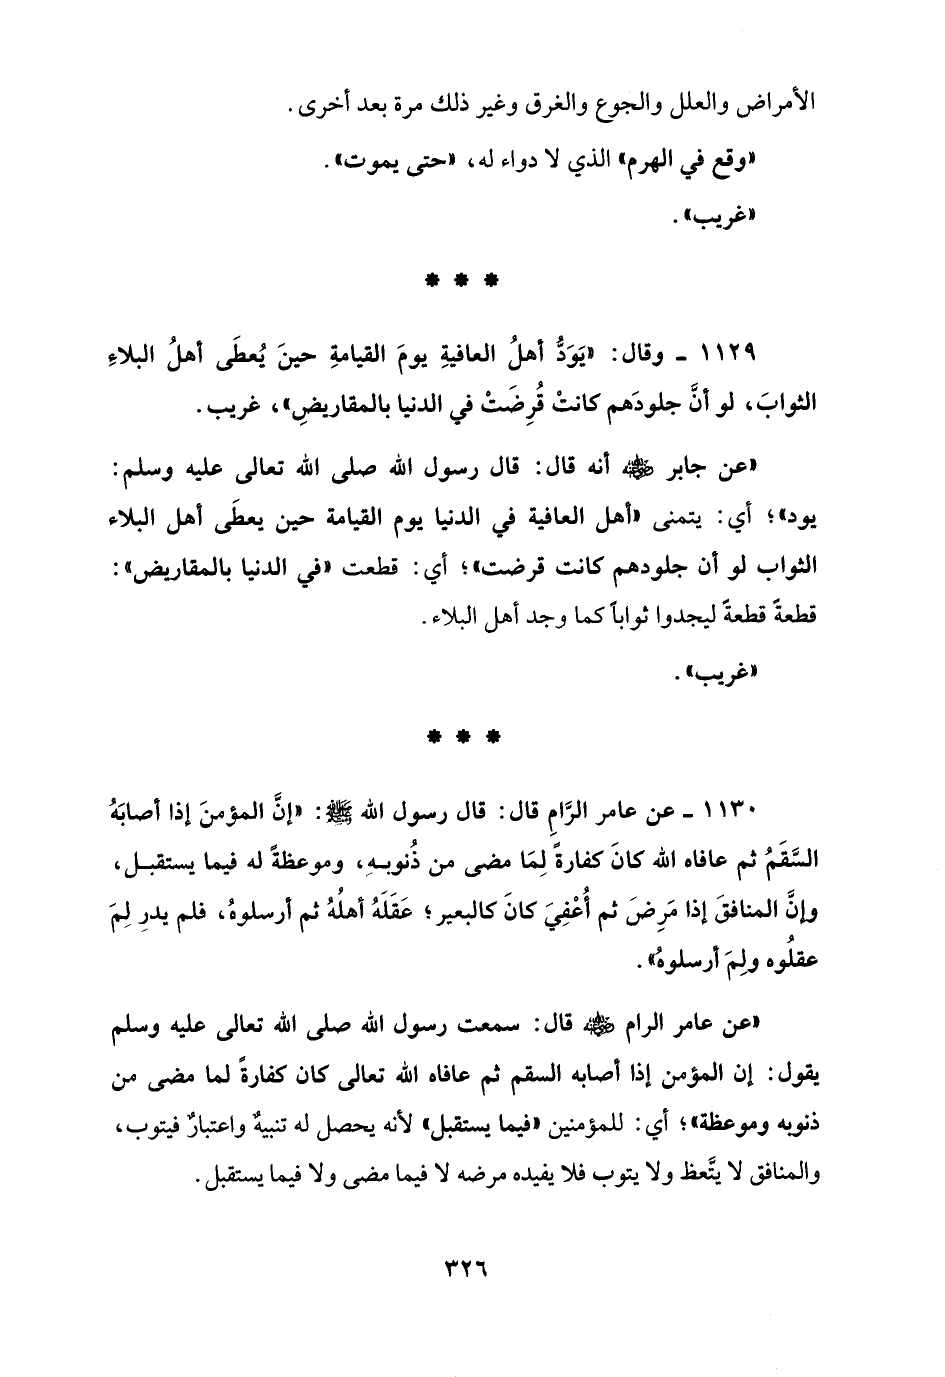 الأمراض والعلل والجوع والغرق وغير ذلك مرة بعد أخرى.
«وقع في الهرم» الذي لا دواء له، «حتى يموت».
«غريب».
* * *
١١٢٩ ـ وقال: «يَوَدُّ أهلُ العافيةِ يومَ القيامةِ حينَ يُعطَى أهلُ البلاءِ
الثوابَ، لو أنَّ جلودَهم كانتْ قُرِضَتْ في الدنيا بالمقاريضِ»، غريب.
«عن جابر ﵁ أنه قال: قال رسول الله صلى الله تعالى عليه وسلم:
يود»؛ أي: يتمنى «أهل العافية في الدنيا يوم القيامة حين يعطَى أهل البلاء
الثواب لو أن جلودهم كانت قرضت»؛ أي: قطعت «في الدنيا بالمقاريض»:
قطعةً قطعةً ليجدوا ثواباً كما وجد أهل البلاء.
«غريب».
* * *
١١٣٠ ـ عن عامر الرَّامِ قال: قال رسول الله ﷺ: «إنَّ المؤمنَ إذا أصابَهُ
السَّقَمُ ثم عافاه الله كانَ كفارةً لِمَا مضى من ذُنوبِهِ، وموعظةً له فيما يستقبل،
وإنَّ المنافقَ إذا مَرِضَ ثم أُعْفِيَ كانَ كالبعير؛ عَقَلَهُ أهلُهُ ثم أرسلوهُ، فلم يدرِ لِمَ
عقلُوه ولِمَ أرسلوهُ».
«عن عامر الرام ﵁ قال: سمعت رسول الله صلى الله تعالى عليه وسلم
يقول: إن المؤمن إذا أصابه السقم ثم عافاه الله تعالى كان كفارةً لما مضى من
ذنوبه وموعظة»؛ أي: للمؤمنين «فيما يستقبل» لأنه يحصل له تنبيهٌ واعتبارٌ فيتوب،
والمنافق لا يتَّعظ ولا يتوب فلا يفيده مرضه لا فيما مضى ولا فيما يستقبل.
٣٢٦